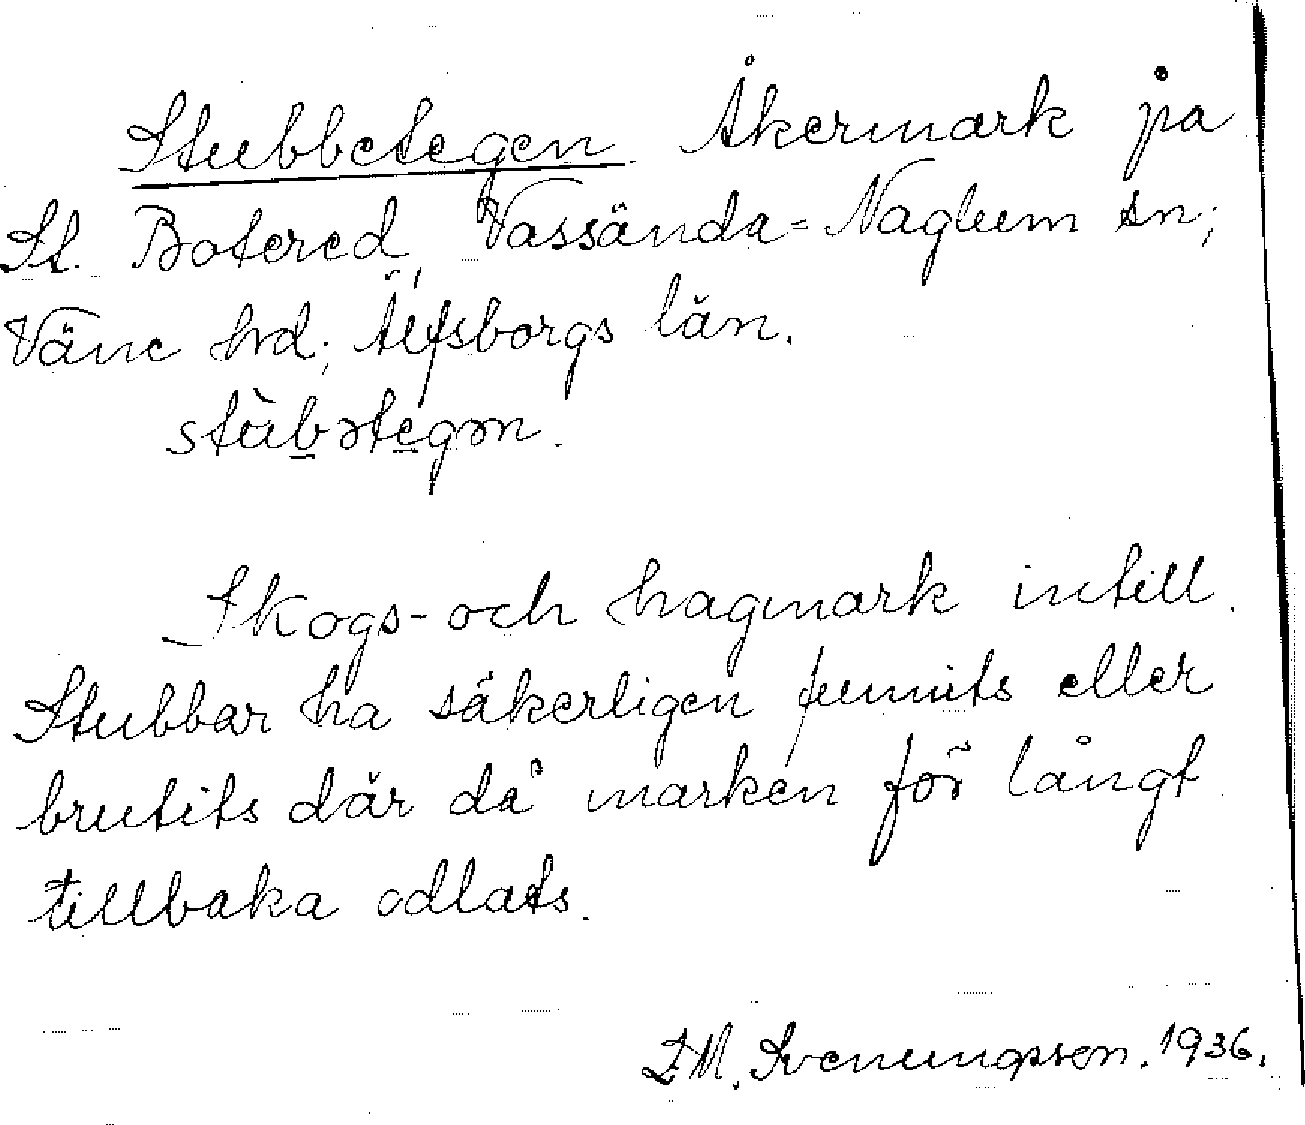 Stubbetegen. Åkermark på
St. Botered, Vassända-Naglum sn;
Väne hd; Älfsborgs län.
stùbətegən.
Skogs- och hagmark intill.
Stubbar ha säkerligen funnits eller
brutits där då marken för långt
tillbaka odlats.
E.M. Svenungsson. 1936.